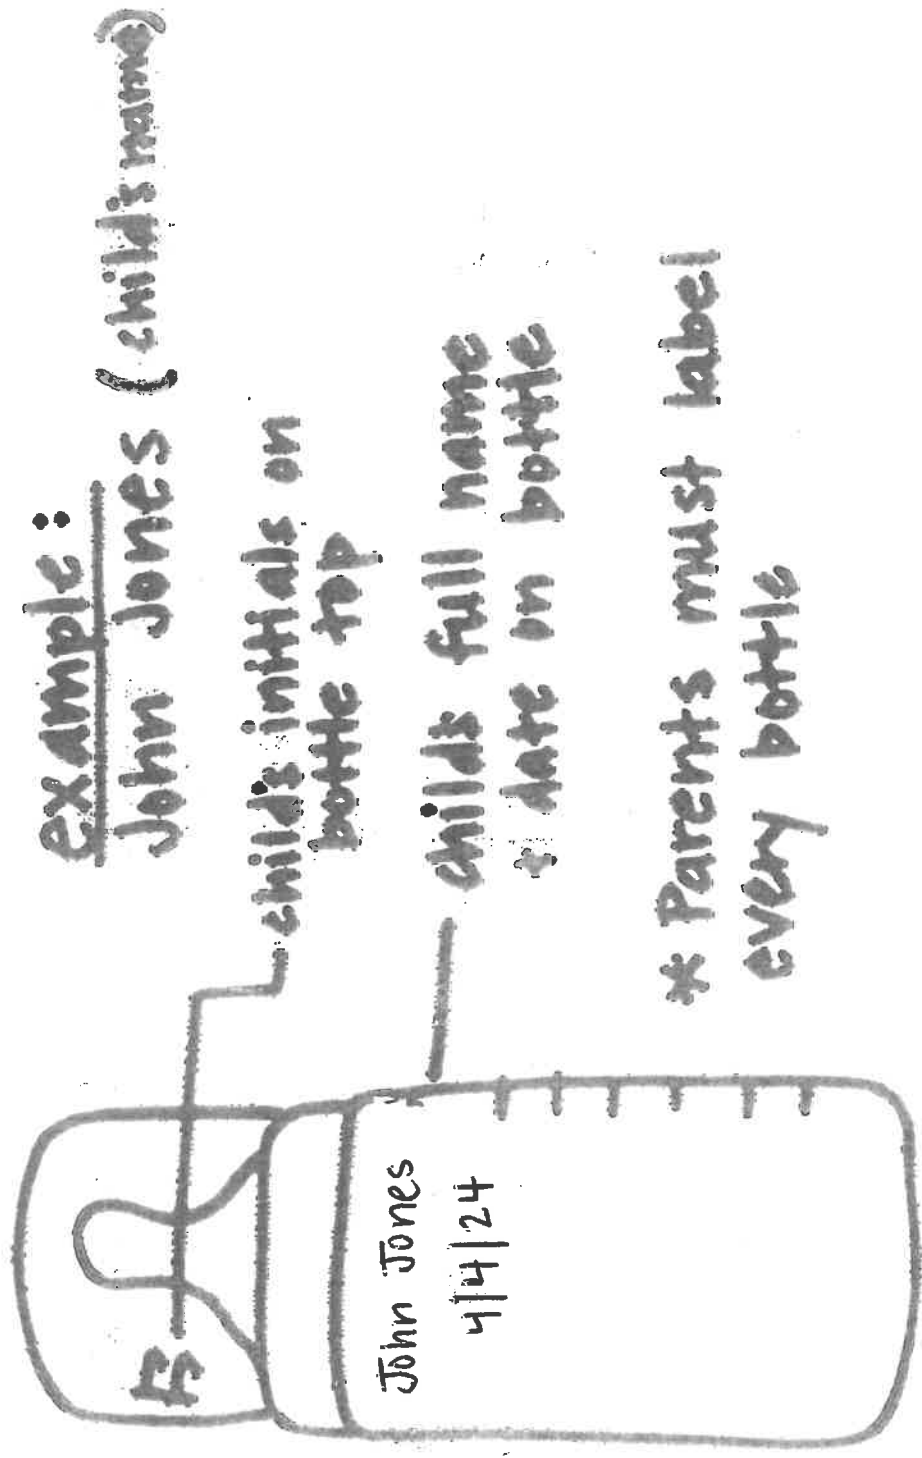 example:
John Jones (child's name)
child's initials on
bottle top
child's full name
+ date on bottle
* Parents must label
every bottle
JJ
John Jones
4/4/24